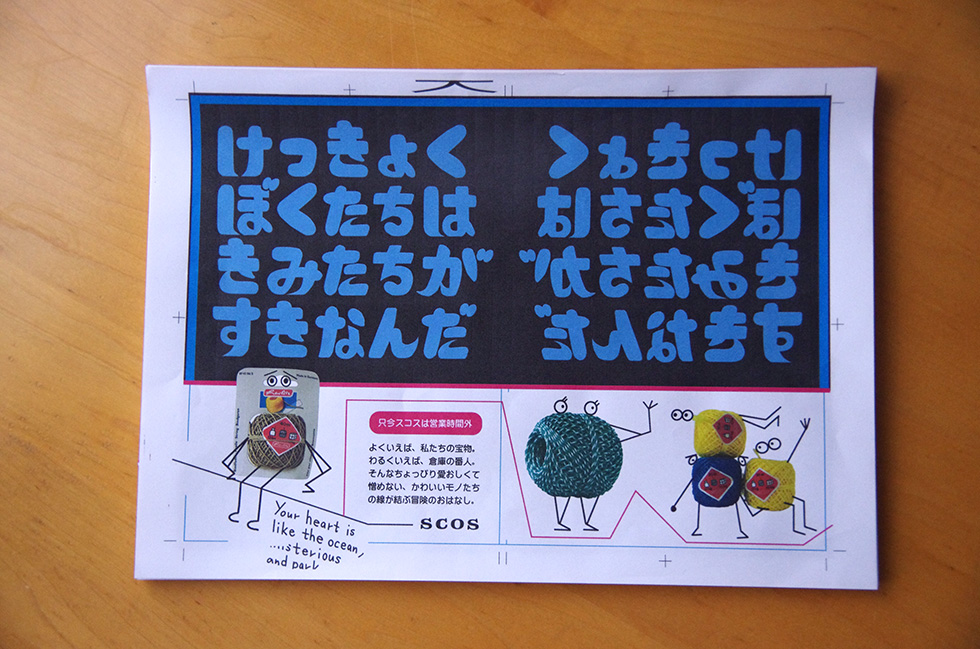 天
けっきょく
ぼくたちは
きみたちが
すきなんだ
けっきょく
ぼくたちは
きみたちが
すきなんだ
只今スコスは営業時間外
よくいえば、私たちの宝物。
わるくいえば、倉庫の番人。
そんなちょっぴり愛おしくて
憎めない、かわいいモノたち
の線が結ぶ冒険のおはなし。
SCOS
Your heart is
like the ocean,
mysterious
and dark